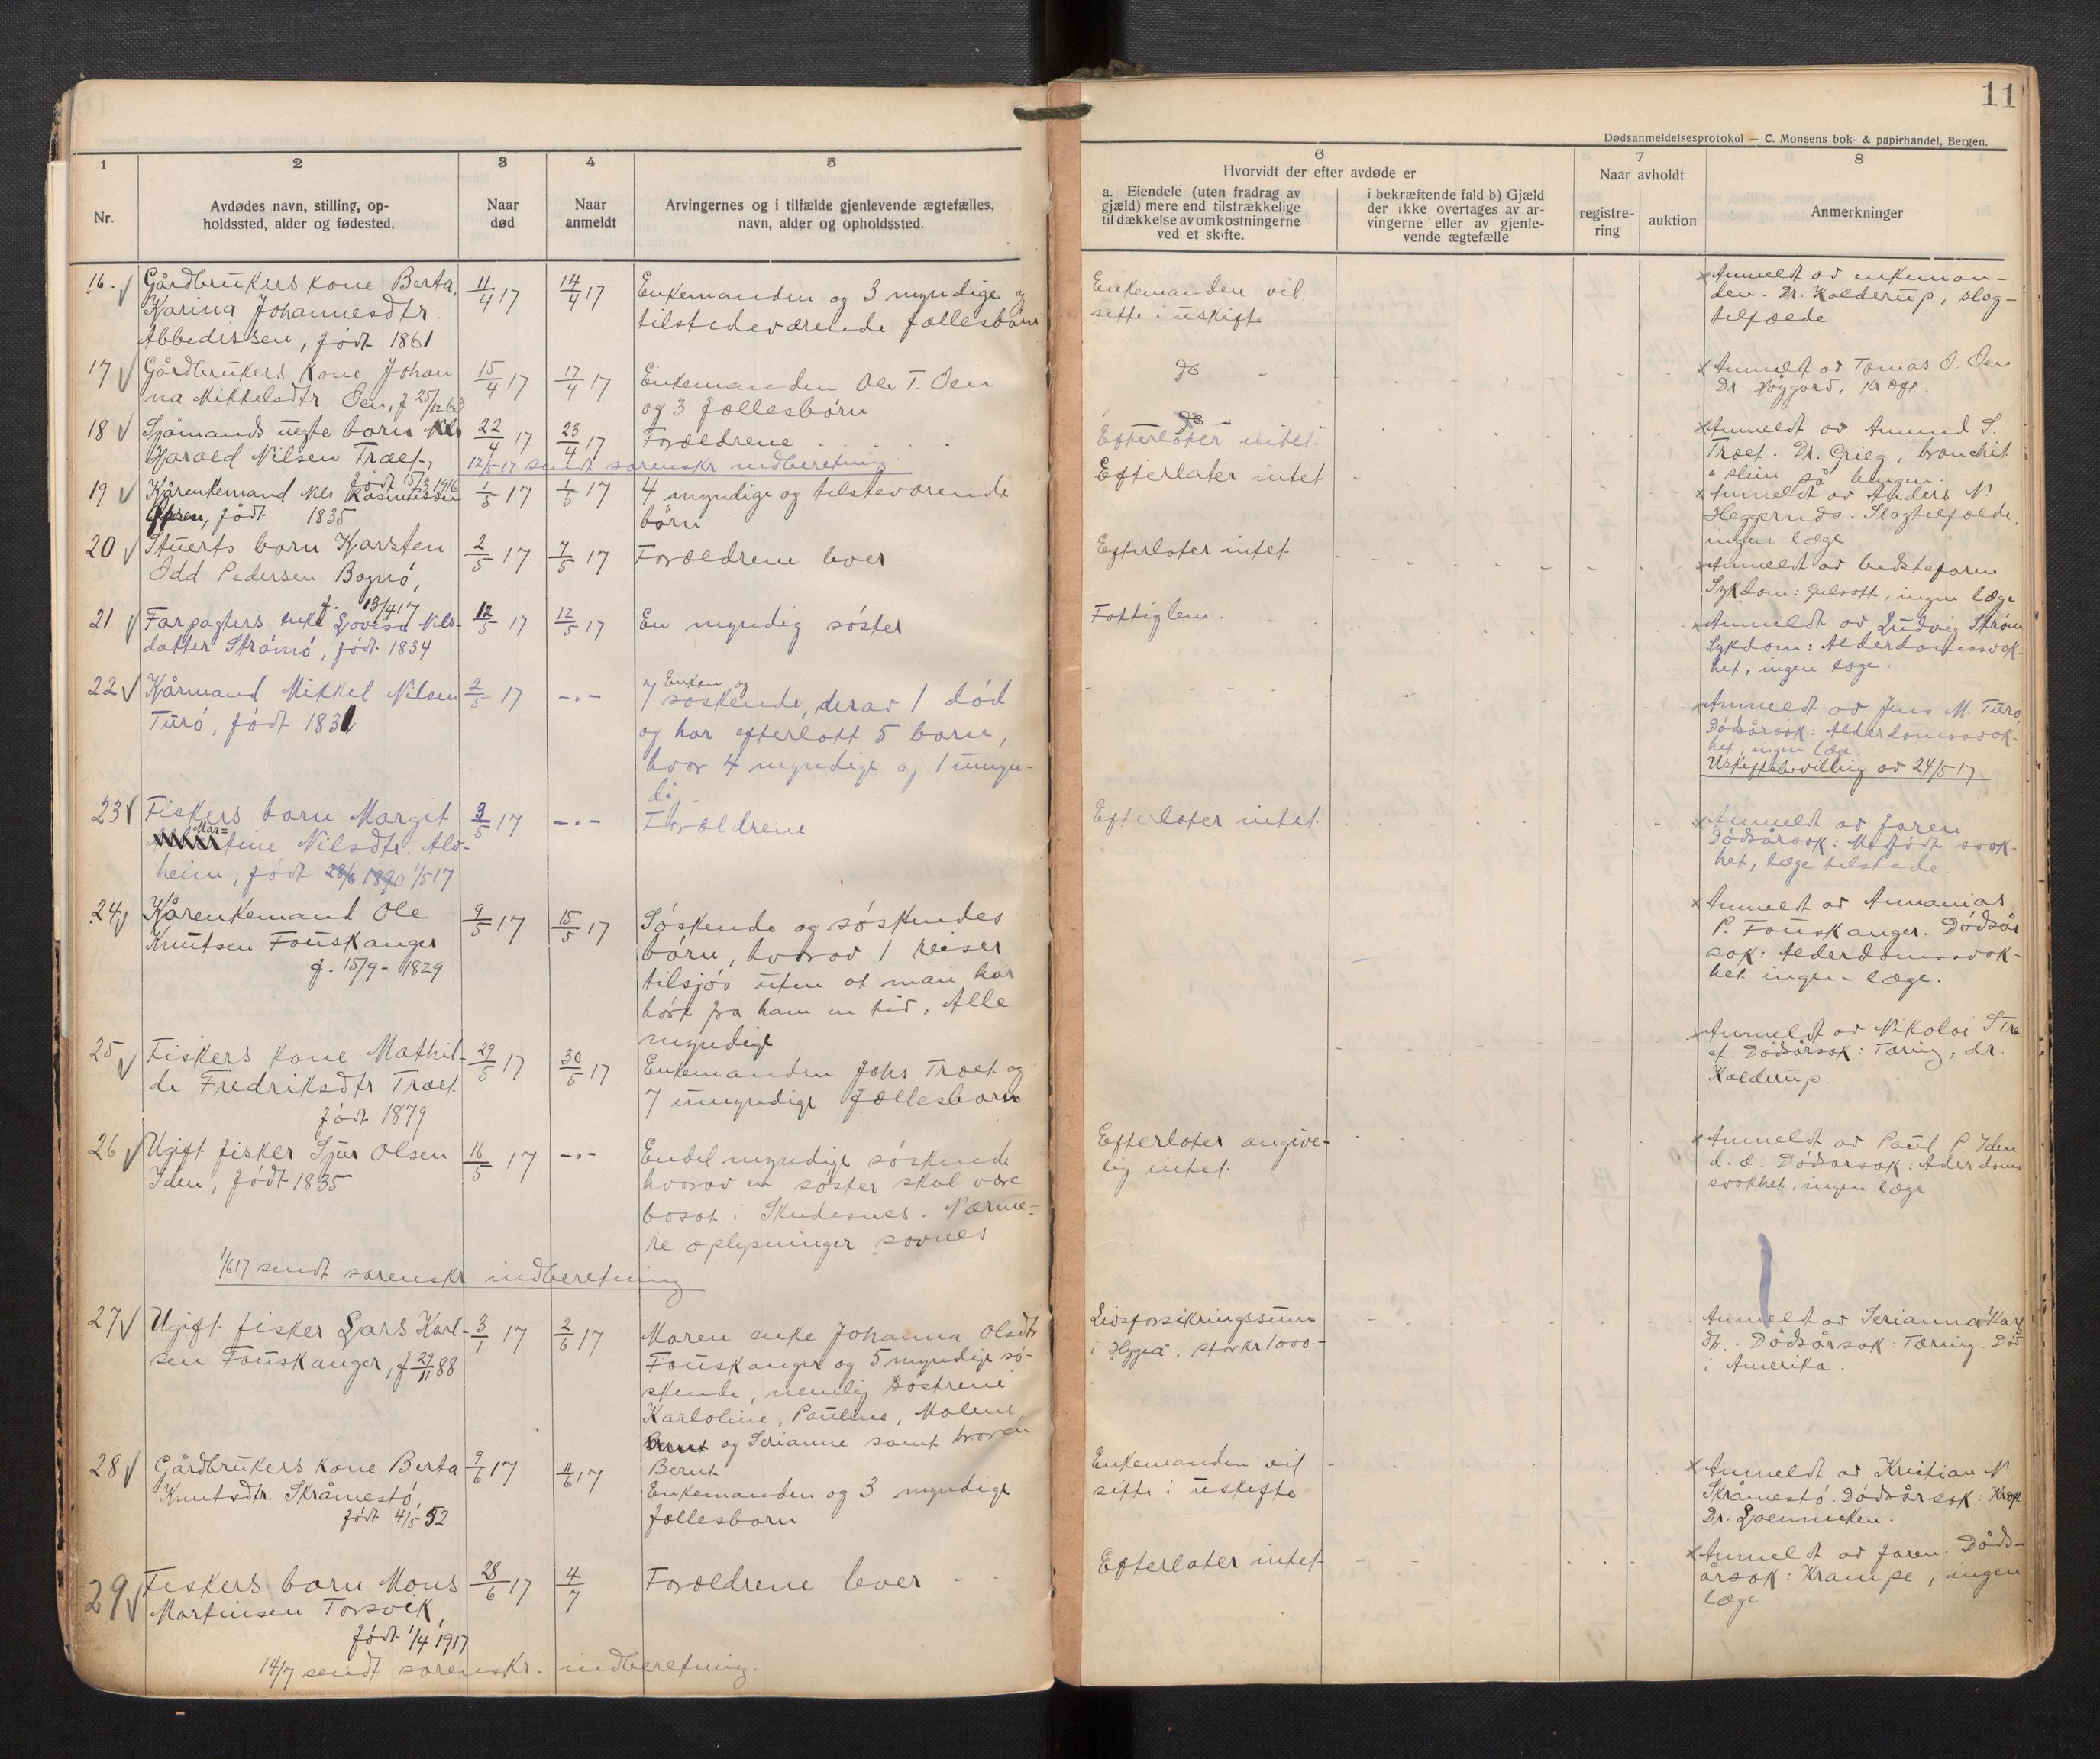 11
Dødsanmeldelsesprotokol — C. Monsens bok- & papirhandel, Bergen.
1
Nr.
2
Avdødes navn, stilling, op-
holdssted, alder og fødested.
3
Naar
død
4
Naar
anmeldt
5
Arvingernes og i tilfælde gjenlevende ægtefælles,
navn, alder og opholdssted.
6
Hvorvidt der efter avdøde er
a. Eiendele (uten fradrag av
gjæld) mere end tilstrækkelige
til dækkelse av omkostningerne
ved et skifte.
i bekræftende fald b) Gjæld
der ikke overtages av ar-
vingerne eller av gjenle-
vende ægtefælle
7
Naar avholdt
registre-
ring
auktion
8
Anmerkninger
16.
Gårdbrukers kone Berta,
Karina Johannesdtr.
Abbedissen, født 1861
11/4 17
14/4 17
Enkemanden og 3 myndige og
tilstedeværende fællesbørn
Enkemanden vil
sitte i uskifte
Anmeldt av enkeman-
den. Dr. Kolderup, slag-
tilfælde
17
Gårdbrukers kone Johan
na Mikkelsdtr Øen, f 25/12 63
15/4 17
17/4 17
Enkemanden Ole T. Øen
og 3 fællesbørn
do
Anmeldt av Tomas O. Øen
Dr. Høygård, kræft
18
Sjømands uegte barn Nils
Harald Nilsen Træet,
født 15/3 1916
22/4 17
23/4 17
Forældrene
Efterlater intet
Anmeldt av Amund S.
Træet. Dr. Grieg, bronchit
" sliim på lungen
12/5 17 sendt sorenskr indberetning
19
Kårenkemand Nils Rasmussen
født 1835
1/5 17
1/5 17
4 myndige og tilsteværende
børn
Efterlater intet
Anmeldt av Anders N.
Heggernes. Slagtilfælde,
ingen læge
20
Stuerts barn Karsten
Odd Pedersen Bognø,
f. 13/4 17
2/5 17
7/5 17
Forældrene lever
Efterlater intet
Anmeldt av bedstefaren
Sykdom: Gulsott, ingen læge
21
Forpagters enke Lovise Nils-
datter Strømø, født 1834
12/5 17
12/5 17
En myndig søster
Fattiglem.
Anmeldt av Ludvig Strøm
Sykdom: Alderdomssvak-
het, ingen læge.
22
Kårmand Mikkel Nilsen
Turø, født 1831
2/5 17
-"-
Enken og
7 søskende, derav 1 død
og har efterlatt 5 barn,
hvor 4 myndige og 1 umyn-
dig
Anmeldt av Jens M. Turø
Dødsårsak: Alderdomssvak-
het, ingen læge.
Uskiftebevilling av 24/5 17
23
Fiskers barn Margit
Mar=
tine Nilsdtr. Alv-
heim, født 28/6 1890 1/5 17
3/5 17
-"-
Forældrene
Efterlater intet
Anmeldt av faren
Dødsårsak: Medfødt svak-
het, læge tilstede.
24
Kårenkemand Ole
Knutsen Fouskanger
f. 15/9 - 1829
9/5 17
15/5 17
Søskende og søskendes
børn, hvorav 1 reiser
tilsjøs uten at man har
hørt fra ham en tid. Alle
myndige
Anmeldt av Annanias
P. Fouskanger. Dødsår
sak: Alderdomssvak-
het ingen læge.
25
Fiskers kone Mathil-
de Fredriksdtr Træet.
født 1879
29/5 17
30/5 17
Enkemanden Johs Træet og
7 umyndige fællesbarn
Anmeldt av Nikolai S Træ
et. Dødsårsak: Tæring, dr.
Kolderup.
26
Ugift fisker Sjur Olsen
Iden, født 1835
16/5 17
-"-
Endel myndige søskende
hvorav en søster skal være
bosat i Skudesnes. Nærme-
re oplysninger savnes
Efterlater angive-
lig intet.
Anmeldt av Paul P. Iden
d. e. Dødsarsak: Alderdoms
svakhet, ingen læge
1/6 17 sendt sorenskr indberetning
27
Ugift fisker Lars Karl-
sen Fouskanger, f 29/11 88
3/1 17
2/6 17
Moren enke Johanna Olsdtr
Fouskanger og 5 myndige sø-
skende, nemlig søstrene
Karloline, Pauline, Malene
og Serianne samt broren
Bernt
Livsforsikringssum
i Hygea. stor kr 1000.-
Anmeldt av Serianna Karl
dtr. Dødsårsak: Tæring. Død
i Amerika.
28
Gårdbrukers kone Berta
Knutsdtr. Skråmestø,
født 4/5 52
9/6 17
11/6 17
Enkemanden og 3 myndige
fællesbarn
Enkemanden vil
sitte i uskifte
Anmeldt av Kristian N.
Skråmestø. Dødsårsak: Kræft
Dr. Loennecken.
29
Fiskers barn Mons
Martinsen Torsvik,
født 1/4 1917
28/6 17
4/7
Forældrene lever
Efterlater intet
Anmeldt av faren. Døds-
årsak: Krampe, ingen
læge
14/7 sendt sorenskr. indberetning.